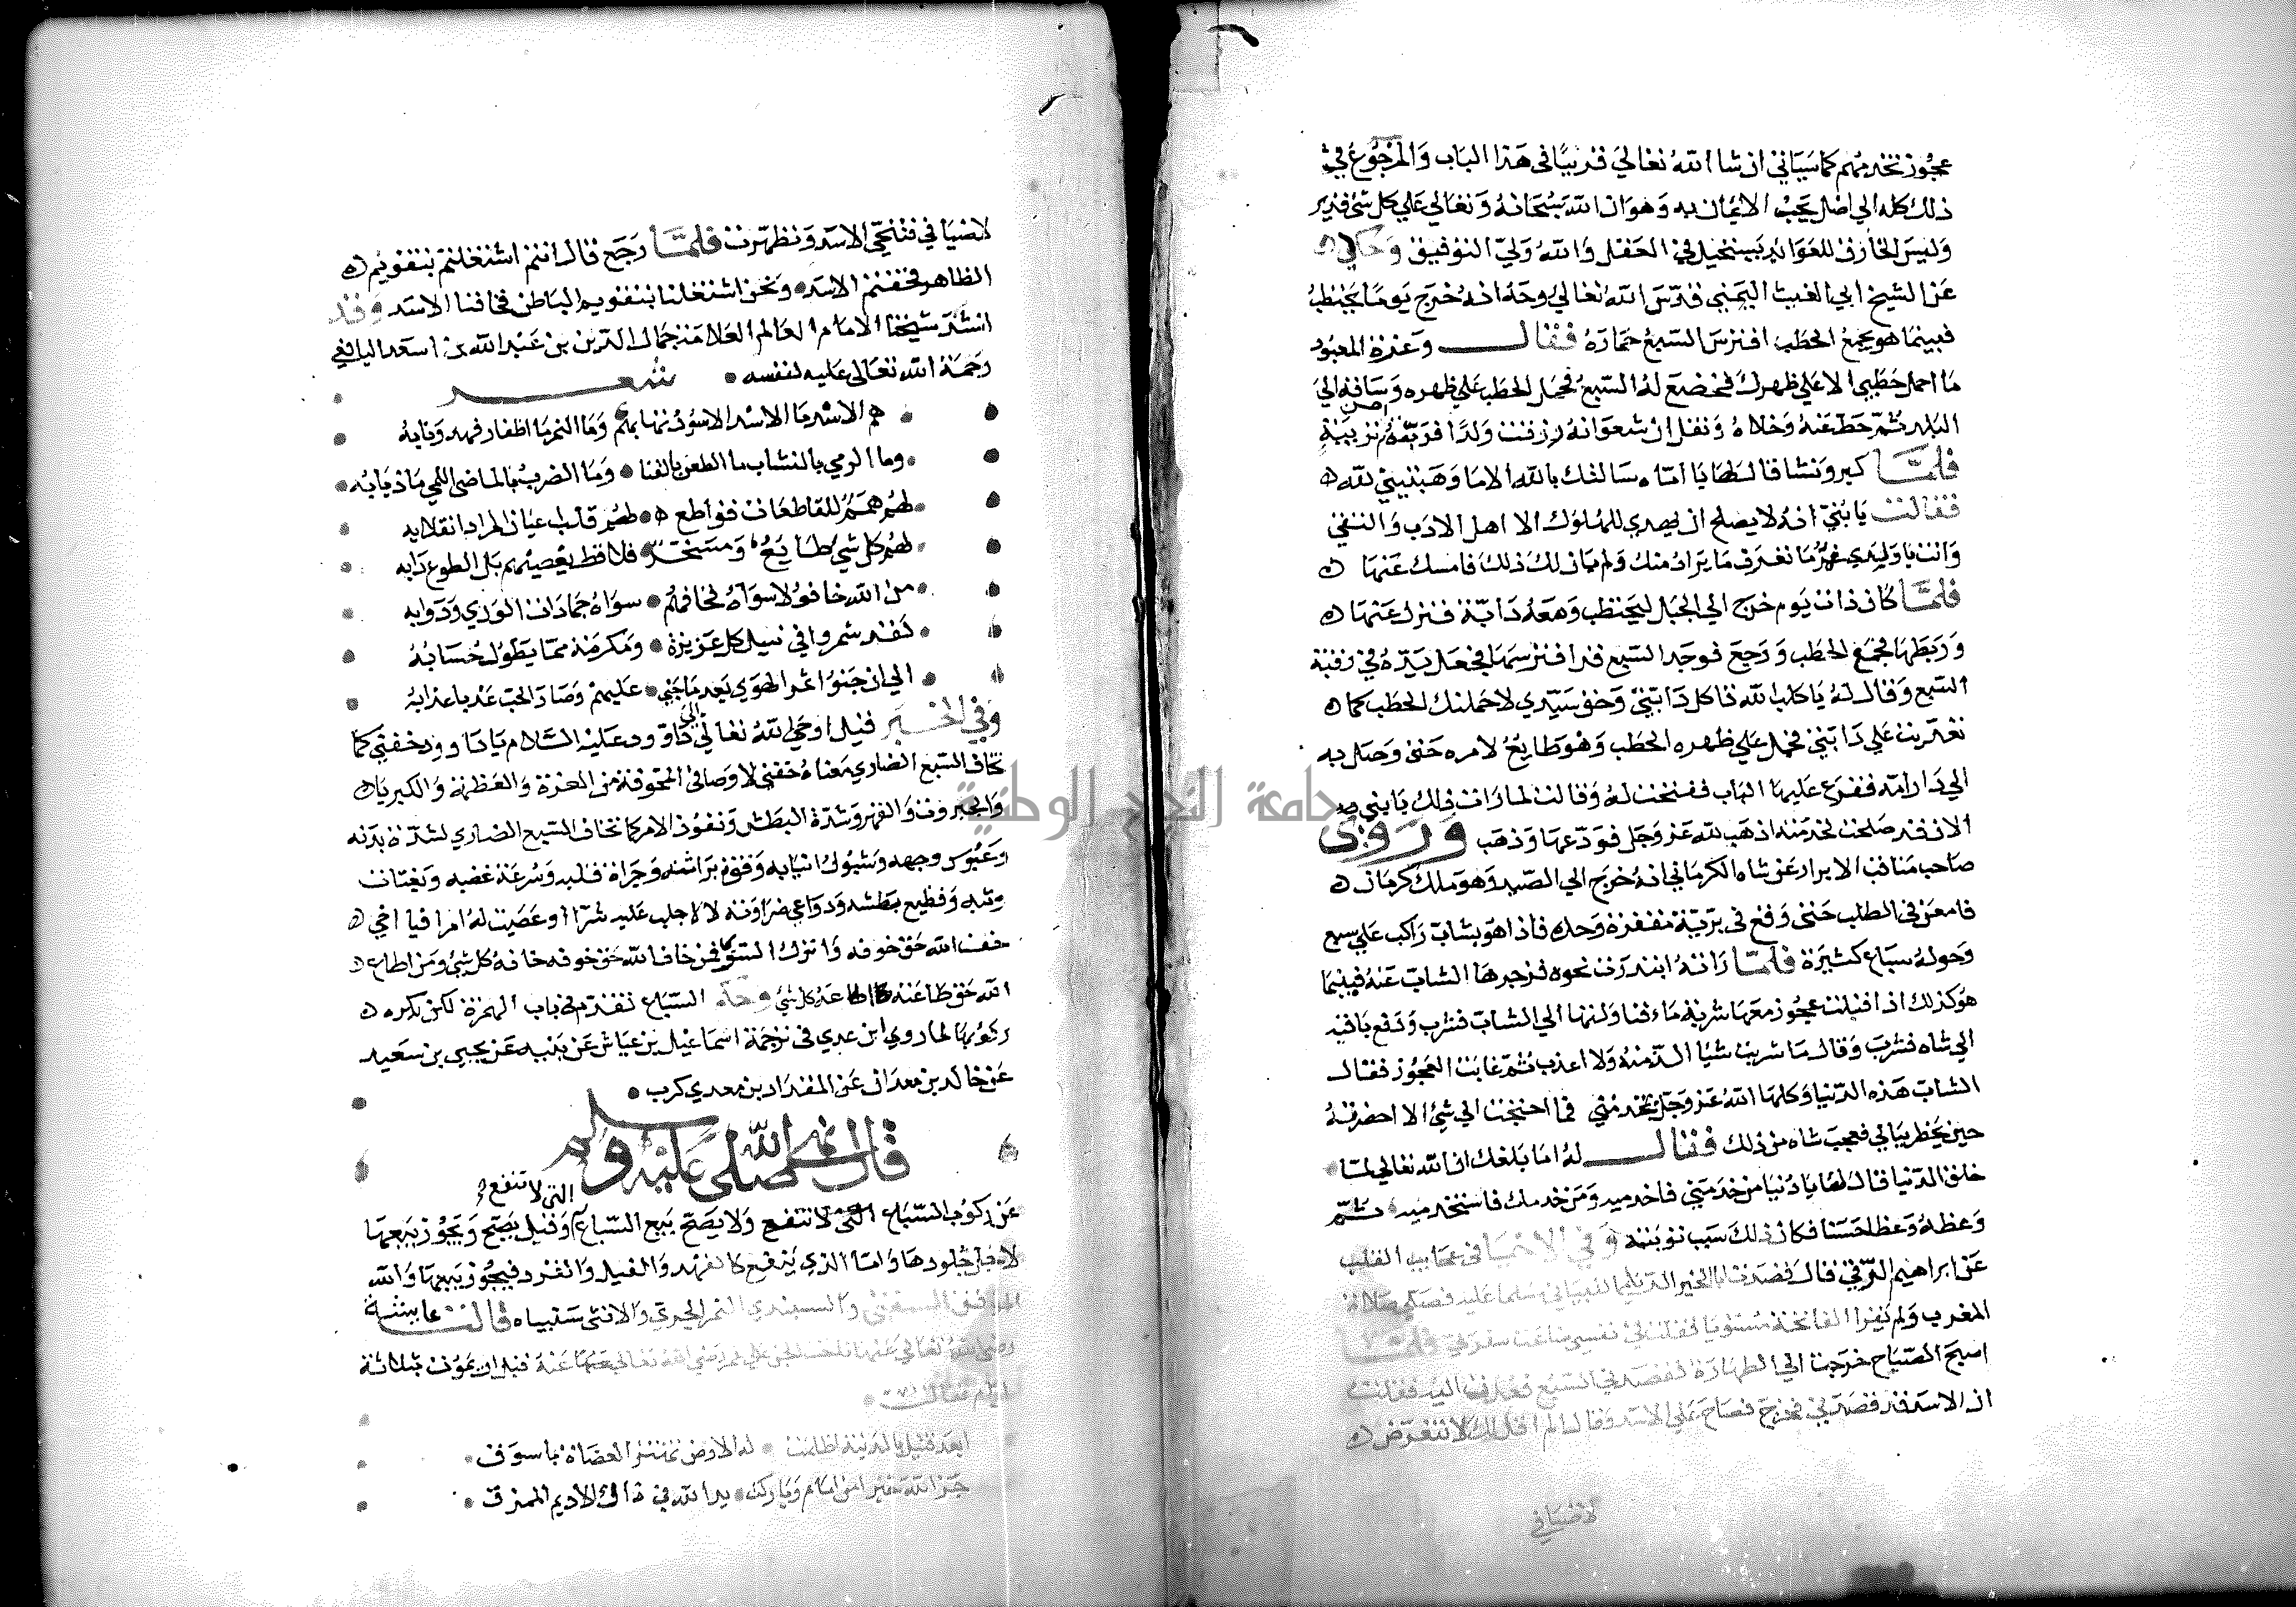 عجوز تخدمهم كما سيأتي ان شا الله تعالى قريبا في هذا الباب والمرجوع في
ذلك كله الى اصل يجب الايمان به وهو ان الله سبحانه وتعالى على كل شي قدير
وليس الخارق للعوائد بمستحيل في العقل والله ولي التوفيق وحكي
عن الشيخ ابي الغيث اليمني قدس الله تعالى روحه انه خرج يوما يحتطب
فبينما هو يجمع الحطب افترس السبع حماره فقال وعزة المعبود
ما احمل حطبي الا على ظهرك فخضع له السبع فحمل الحطب على ظهره وساقه الى
البلد ثم حط عنه وخلاه ونقل ان شعوانه رزقت ولدا فربته احسن تربية
فلما كبر ونشا قال لها يا اماه سالتك بالله الا ما وهبتيني لله
فقالت يا بني انه لا يصلح ان يهدى للملوك الا اهل الادب والتقى
وانت يا ولدي غمر ما تعرف ما يراد منك ولم يان لك ذلك فامسك عنها
فلما كان ذات يوم خرج الى الجبل ليحتطب ومعه دابة فنزل عنها
وربطها فجمع الحطب ورجع فوجد السبع قد افترسها فجعل يده في رقبة
السبع وقال له يا كلب الله تاكل دابتي وحق سيدي لاحملنك الحطب كما
تعديت على دابتي فحمل على ظهره الحطب وهو طايع لامره حتى وصل به
الى دار امه فقرع عليها الباب ففتحت له وقالت لما رات ذلك يا بني
الان قد صلحت لخدمته اذهب لله عز وجل فودعها وذهب وروى
صاحب مناقب الابرار عن شاه الكرماني انه خرج الى الصيد وهو ملك كرمان
فامعن في الطلب حتى وقع في برية مقفرة وحده فاذا هو بشاب راكب على سبع
وحوله سباع كثيرة فلما راته ابتدرت نحوه فزجرها الشاب عنه فبينما
هو كذلك اذ اقبلت عجوز معها شربة ماء فناولتها الى الشاب فشرب ودفع باقيه
الى شاه فشرب وقال ما شربت شيا الذ منه ولا اعذب ثم غابت العجوز فقال
الشاب هذه الدنيا وكلها الله عز وجل بخدمتي فما احتجت الى شي الا احضرته
حين يخطر ببالي فعجب شاه من ذلك فقال له اما بلغك ان الله تعالى لما
خلق الدنيا قال لها يا دنيا من خدمني فاخدميه ومن خدمك فاستخدميه ثم
وعظه وعظا حسنا فكان ذلك سبب توبته وفي الاحيا في عجايب القلب
عن ابراهيم الرقي قال قصدت ابا الخير الديلمي التيناتي مسلما عليه فصلى صلاة
المغرب ولم يقرا الفاتحة مستويا فقلت في نفسي ضاعت سفرتي فلما
اصبح الصباح خرجت الى الطهارة فقصدني السبع فعدت اليه فقلت
ان الاسد قد قصدني فخرج فصاح على الاسد وقال الم اقل لك لا تتعرض
لاضيافي
لاضيافي فتنحى الاسد وتطهرت فلما رجع قال انتم اشتغلتم بتقويم
الظاهر فخفتم الاسد ونحن اشتغلنا بتقويم الباطن فخافنا الاسد وقد
انشد شيخنا الامام العالم العلامة جمال الدين بن عبد الله بن اسعد اليافعي
رحمة الله تعالى عليه لنفسه شعر
هم الاسد ما الاسد الاسود تهابهم وما النمر ما اظفار فهد ونابه
وما الرمي بالنشاب ما الطعن بالقنا وما الضرب بالماضي الكمي ما ذبابه
لهم همم للقاطعات قواطع لهم قلب اعيان المراد انقلابه
لهم كل شي طايع ومسخر فلا قط يعصيهم بل الطوع دابه
من الله خافوا لا سواه فخافهم سواه جمادات الورى ودوابه
لقد شمروا في نيل كل عزيزة ومكرمة مما يطول حسابه
الى ان جنوا ثمر الهوى بعد ما جنى عليهم وصار الحب عذبا عذابه
وفي الخبر قيل اوحى الله تعالى الى داوود عليه السلام يا داوود خفني كما
تخاف السبع الضاري معناه خفني لاوصافي المخوفة من العزة والعظمة والكبريا
والجبروت والقهر وشدة البطش ونفوذ الامر كما تخاف السبع الضاري لشدة بدنه
وعبوس وجهه وشبوك انيابه وقوة براثنه وجراة قلبه وسرعة غضبه وبغتات
وثبه وفظيع بطشه ودواعي ضراوته لا لاجلب عليه شرا او عصيت له امرا فيا اخي
خف الله حق خوفه واترك السوى فمن خاف الله حق خوفه خافه كل شي ومن اطاع
الله حق طاعته اطاعه كل شي وحكم السباع تقدم في باب الهمزة لكن يكره
ركوبها لما روى ابن عدي في ترجمة اسماعيل بن عياش عن بقية عن يحيى بن سعيد
عن خالد بن معدان عن المقداد بن معدي كرب
قال نهى النبي صلى الله عليه وسلم
عن ركوب السباع التي لا تنتفع ولا يصح بيع السباع التي لا تنفع وقيل يصح ويجوز بيعها
لاجل جلودها واما الذي ينفع كالفهد والفيل والقرد فيجوز بيعها والله
الموفق السبنتى والسبندي النمر الجري والانثى سبنتاه قالت عايشة
رضي الله تعالى عنها ناحت الجن على عمر رضي الله تعالى عنه قبل ان يموت بثلاثة
ايام فقالت
ابعد قتيل بالمدينة اظلمت له الارض تهتز العضاه باسوق
جزى الله خيرا من امام وباركت يد الله في ذاك الاديم الممزق
جامعة النجاح الوطنية